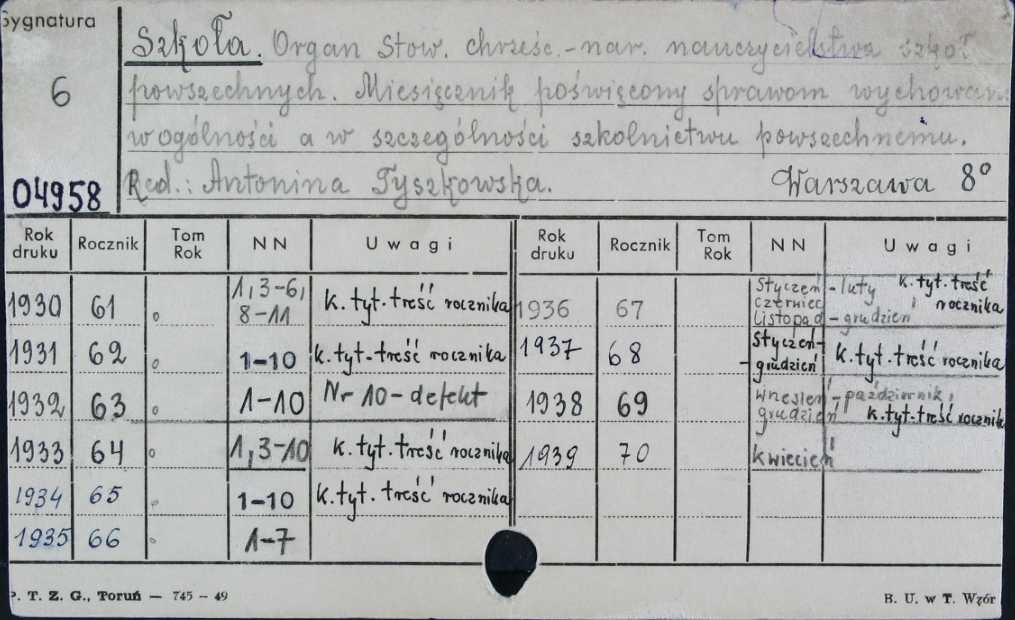 Sygnatura
6
04958
Szkoła. Organ Stow. chrześc.-nar. nauczycielstwa szkół
powszechnych. Miesięcznik poświęcony sprawom wychowan
w ogólności a w szczególności szkolnictwu powszechnemu.
Red.: Antonina Tyszkowska. Warszawa 8°
Rok druku Rocznik Tom Rok N N Uwagi
1930 61 1, 3-6, 8-11 K. tyt. treść rocznika
1931 62 1-10 K. tyt-treść rocznika
1932 63 1-10 Nr 10-defekt
1933 64 1, 3-10 K. tyt. treść rocznika
1934 65 1-10 K. tyt. treść rocznika
1935 66 1-7
Rok druku Rocznik Tom Rok N N Uwagi
1936 67 styczeń - luty K. tyt. treść
czerwiec i rocznika
listopad - grudzień
1937 68 styczeń-
grudzień K. tyt. treść rocznika
1938 69 wrzesień - październik,
grudzień K. tyt. treść rocznik
1939 70 kwiecień
P. T. Z. G., Toruń — 745 - 49
B. U. w T. Wzór